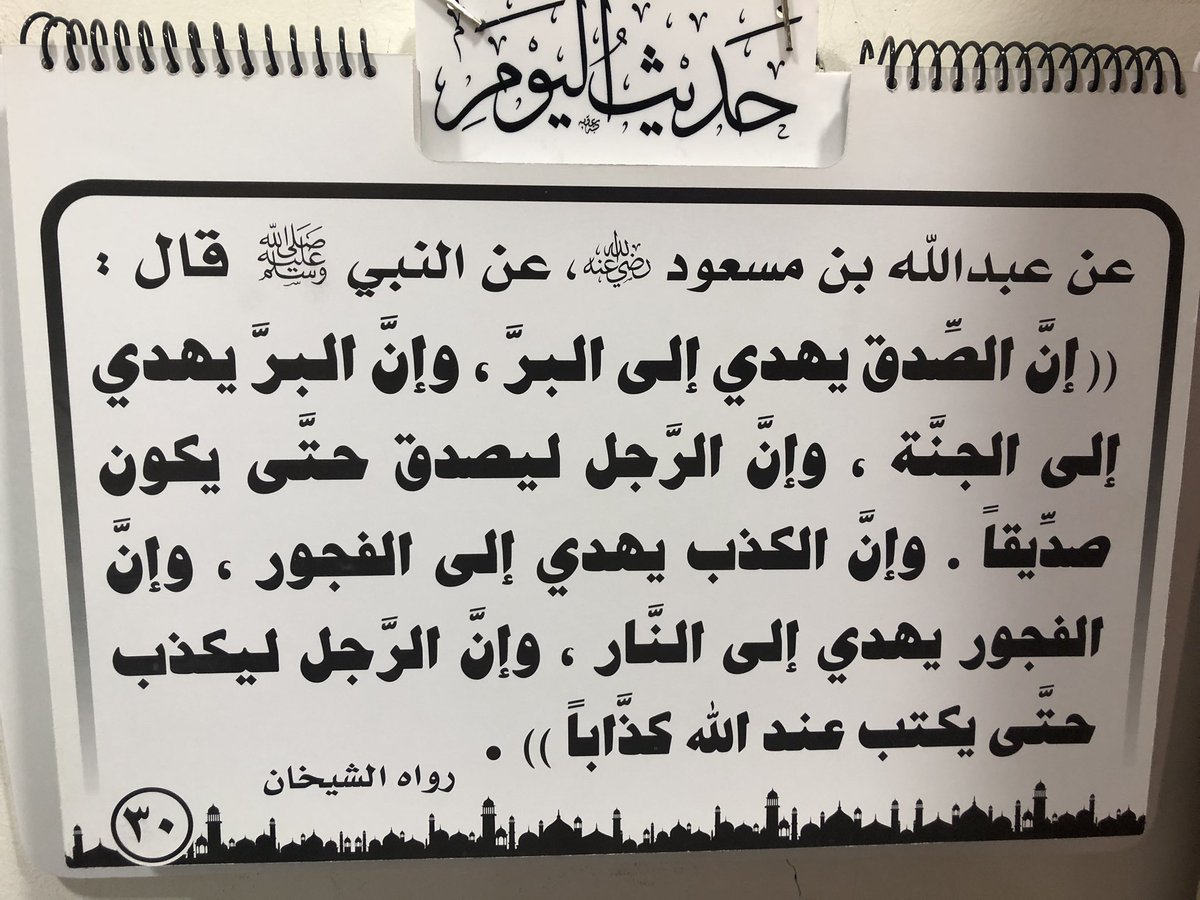 حَديثُ اليَومِ
عن عبدالله بن مسعود رضي الله عنه، عن النبي صلى الله عليه وسلم قال :
(( إنَّ الصِّدق يهدي إلى البرَّ ، وإنَّ البرَّ يهدي
إلى الجنَّة ، وإنَّ الرَّجل ليصدق حتَّى يكون
صدِّيقاً . وإنَّ الكذب يهدي إلى الفجور ، وإنَّ
الفجور يهدي إلى النَّار ، وإنَّ الرَّجل ليكذب
حتَّى يكتب عند الله كذَّاباً )) .
رواه الشيخان
٣٠